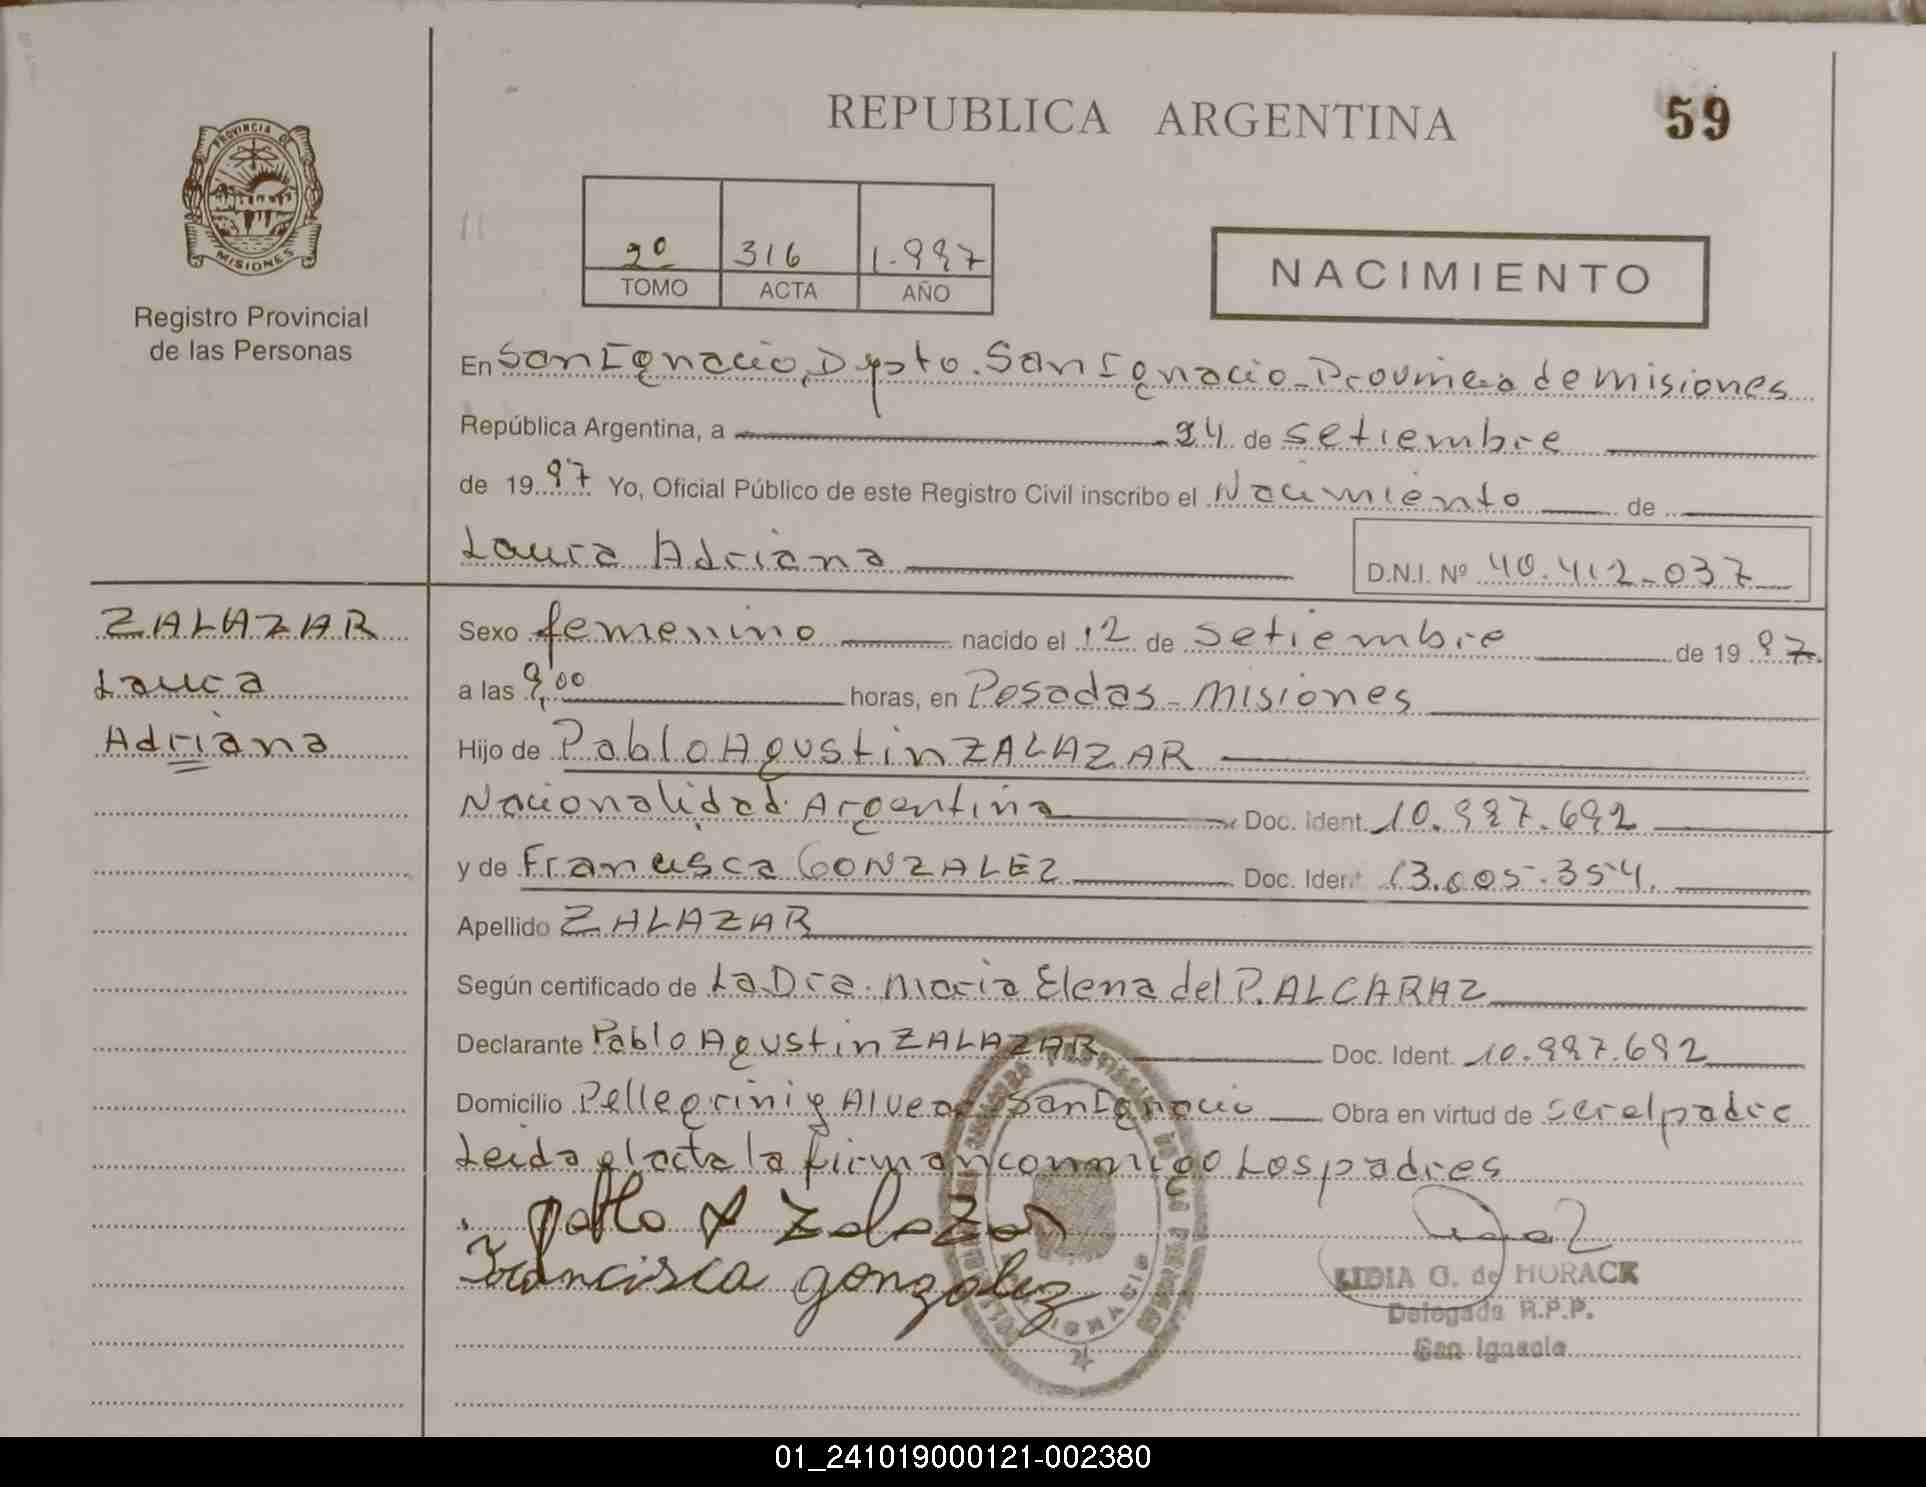 REPUBLICA ARGENTINA
59
PROVINCIA DE
MISIONES
Registro Provincial
de las Personas
2º 316 1.997
TOMO ACTA AÑO
NACIMIENTO
En San Ignacio, Dpto. San Ignacio - Provincia de misiones
República Argentina, a 24 de setiembre
de 1997 Yo, Oficial Público de este Registro Civil inscribo el Nacimiento de
Laura Adriana
D.N.I. Nº 40.412.037
ZALAZAR
Laura
Adriana
Sexo femenino nacido el 12 de setiembre de 1997.
a las 9,00 horas, en Posadas - Misiones
Hijo de Pablo Agustin ZALAZAR
Nacionalidad Argentina Doc. Ident. 10.997.692
y de Francisca GONZALEZ Doc. Ident 13.005.354.
Apellido ZALAZAR
Según certificado de La Dra. Maria Elena del P. ALCARAZ
Declarante Pablo Agustin ZALAZAR Doc. Ident. 10.997.692
Domicilio Pellegrini y Alvear San Ignacio Obra en virtud de ser el padre
Leida el acta la firman conmigo Los padres
pablo A Zalazar
Francisca gonzalez
LIDIA G. de HORACK
Delegada R.P.P.
San Ignacio
IGNACIO
01_241019000121-002380